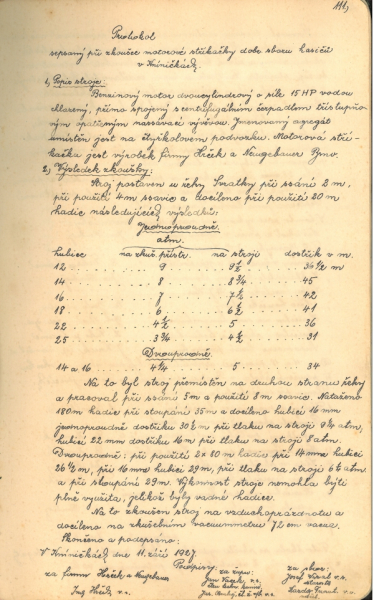 111)
Protokol
sepsaný při zkoušce motorové stříkačky dobr. sboru hasičů
v Kníničkách.
1) Popis stroje:
Benzinový motor dvoucylindrový o síle 15 HP vodou
chlazený, přímo spojený s centrifugálním čerpadlem třístupňo-
vým opatřeným nassávací vývěvou. Jmenovaný agregát
umístěn jest na čtyřkolovém podvozku. Motorová stří-
kačka jest výrobek firmy Hrček a Neugebauer Brno.
2) Výsledek zkoušky:
Stroj postaven u řeky Svratky při ssání 2 m,
při použití 4 m ssavic a docíleno při použití 20 m
hadic následujících výsledků:
Jednoproudně.
atm.
hubice na zkuš. přístr. na stroji dostřik v m.
12 9 9½ 36½ m
14 8 8¾ 45
16 7 7½ 42
18 6 6½ 41
22 4½ 5 36
25 3¾ 4½ 31
Dvouproudně.
14 a 16 4¼ 5 34
Na to byl stroj přemístěn na druhou stranu řeky
a pracoval při ssání 5 m a použití 8 m ssavic. Nataženo
180 m hadic při stoupání 35 m a docíleno hubicí 16 mm
jednoproudně dostřiku 30½ m při tlaku na stroji 9¼ atm,
hubicí 22 mm dostřiku 16 m při tlaku na stroji 8 atm.
Dvouproudně: při použití 2 × 80 m hadic při 14 mm hubici
26½ m, při 16 mm hubici 29 m, při tlaku na stroji 6½ atm
a při stoupání 29 m. Výkonnost stroje nemohla býti
plně využita, jelikož byly vadné hadice.
Na to zkoušen stroj na vzduchoprázdnotu a
docíleno na zkušebním vacuummetru 72 cm vacua.
Skončeno a podepsáno:
V Kníničkách dne 11. září 1927.
Podpisy:
za firmu Hrček a Neugebauer
Ing Hrček v. r.
za župu:
za sbor:
Josef